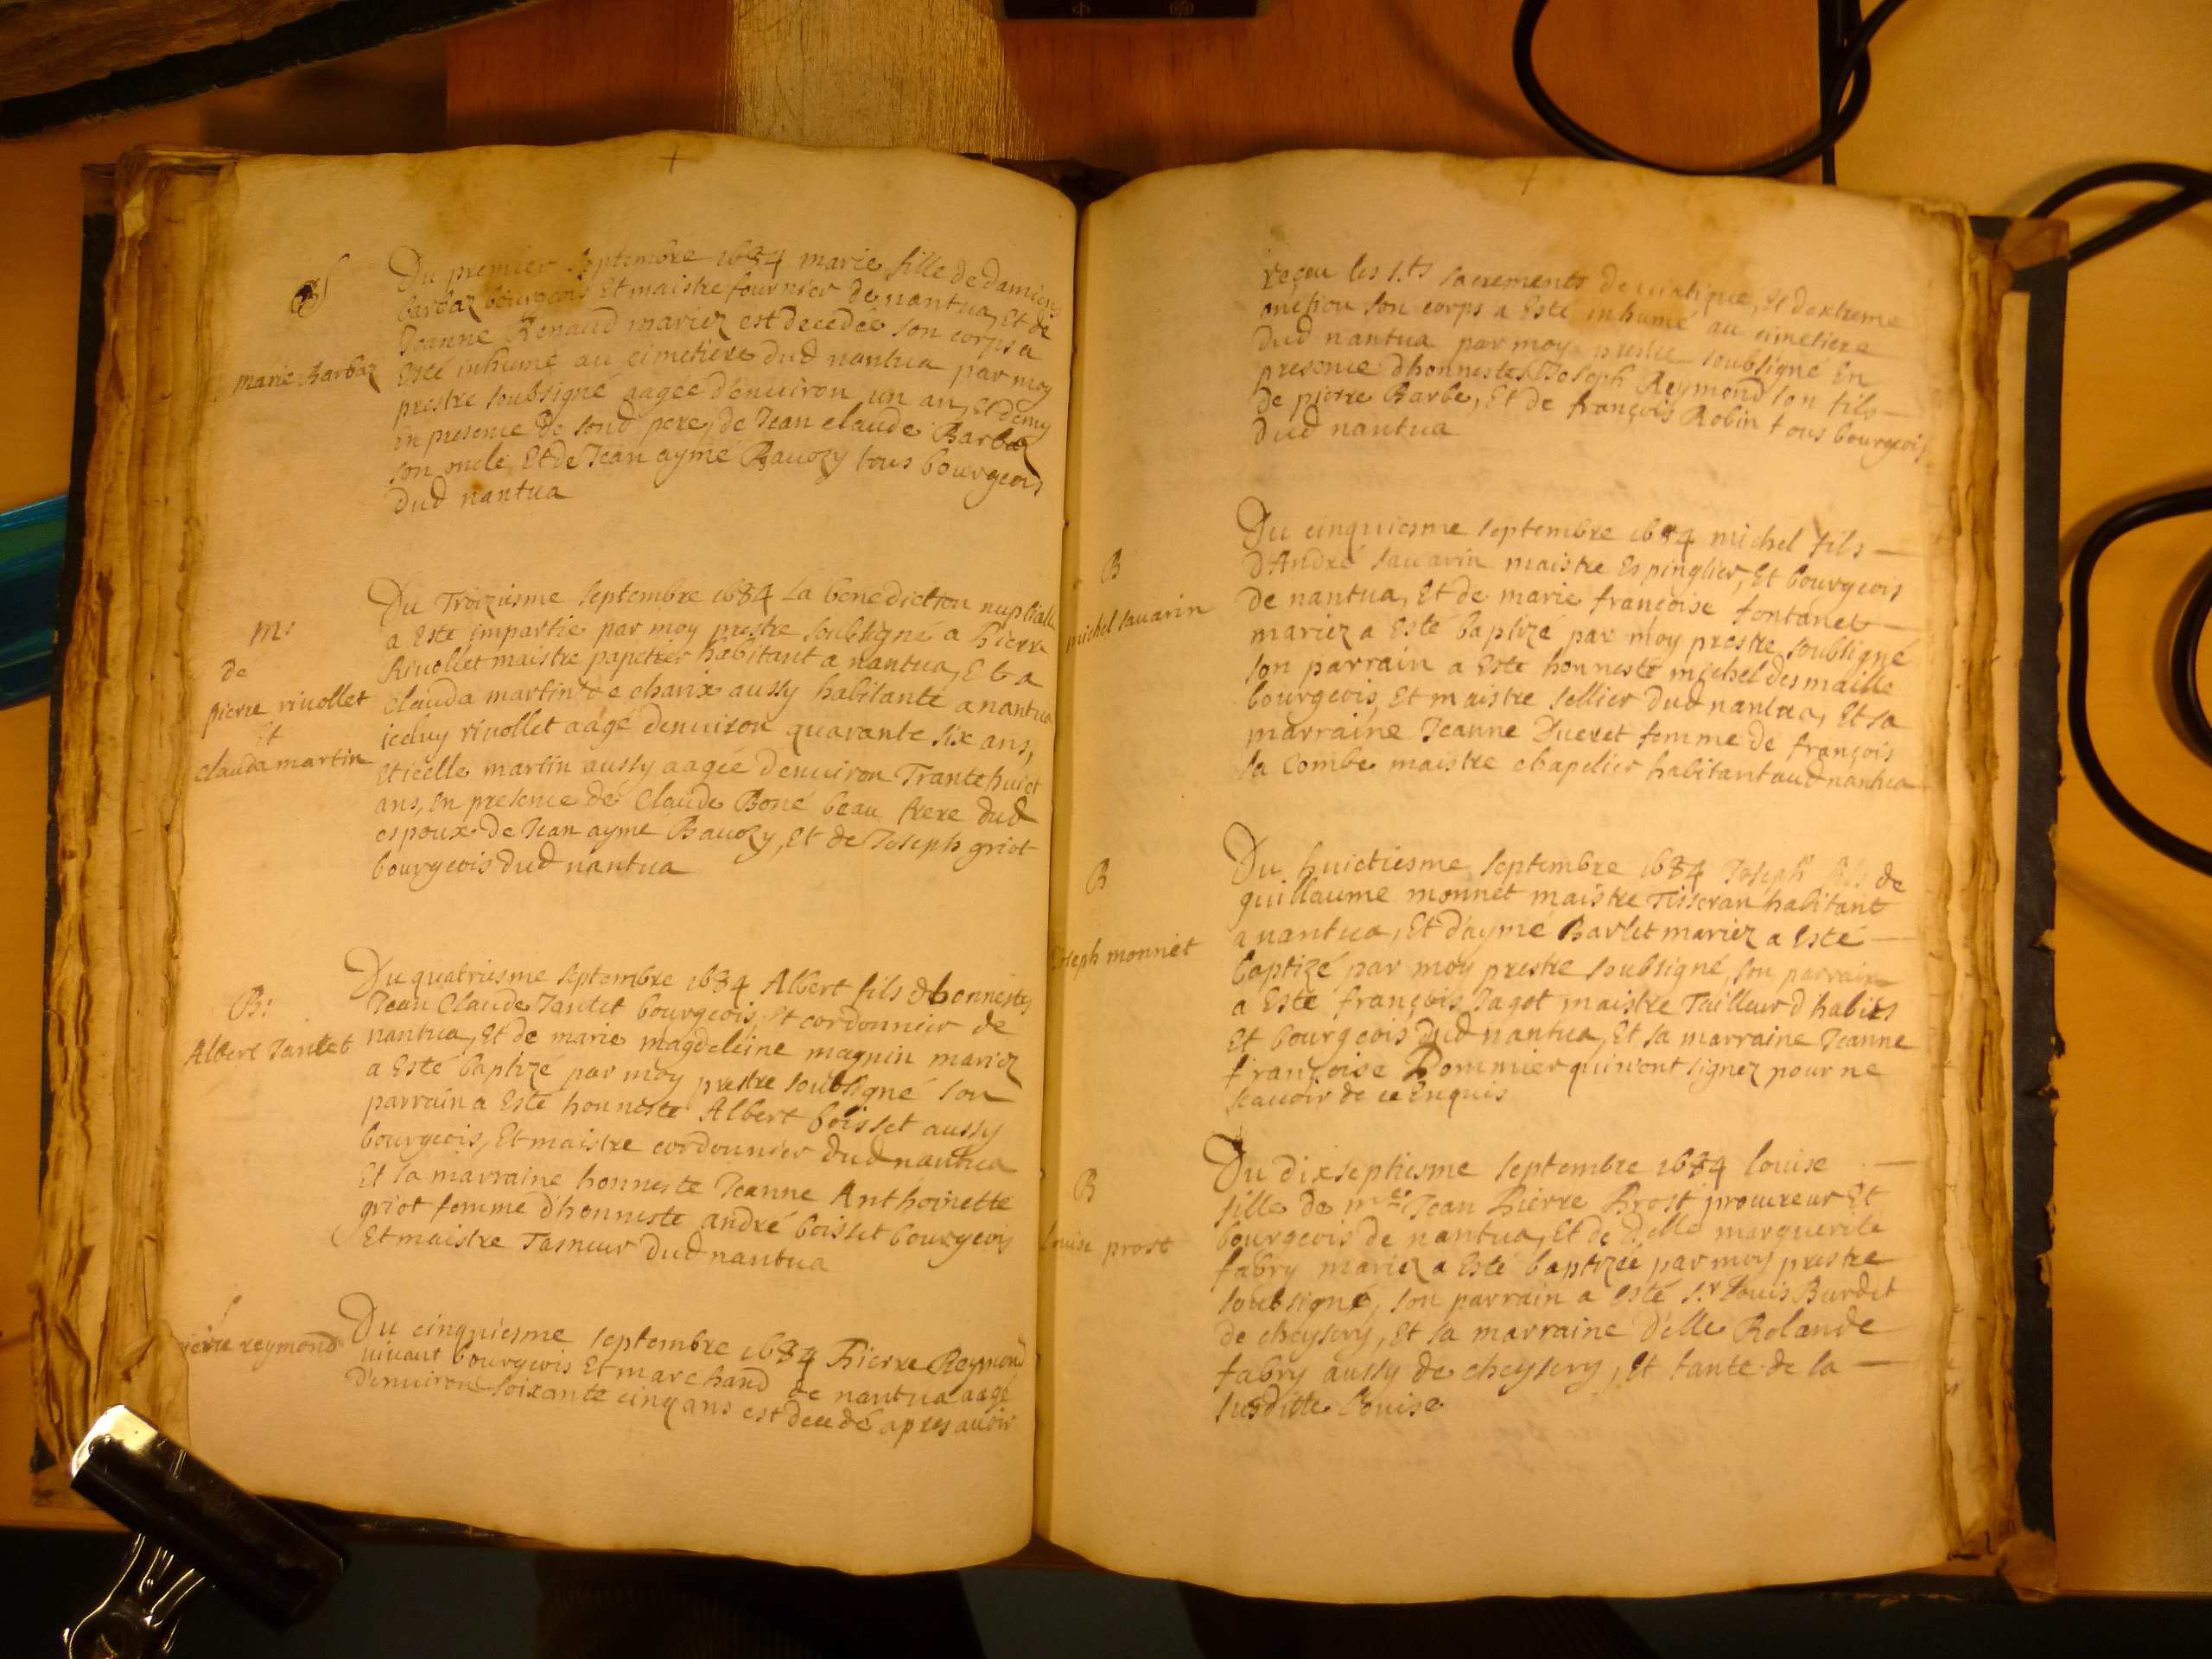 S
marie Barbaz
Du premier septembre 1684 marie fille de damien
barbaz bourgeois Et maistre fournier de nantua, Et de
Jeanne Renaud mariez est decedée son corps a
Esté inhumé au cimetiere dud nantua par moy
prestre soubsigné aagée d'enuiron un an, et demy
En presence de sond pere, de Jean claude Barbaz
son oncle, Et de Jean aymé Bauozy tous bourgeois
dud nantua
m:
de
pierre riuollet
Et
clauda martin
Du Troiziesme septembre 1684 La benediction nuptialle
a Esté impartie par moy prestre soubsigné a Pierre
Riuollet maistre papetier habitant a nantua, Et a
Clauda martin de charix aussy habitante a nantua
iceluy riuollet aagé denuiron quarante six ans,
Et icelle martin aussy aagée denuiron Trante huict
ans, En presence de Claude Boné beau frere dud
espoux de Jean aymé Bauozy, Et de Joseph griot
bourgeois dud nantua
B:
Albert Jantet
Du quatriesme septembre 1684 Albert fils dhonnestes
Jean Claude Jantet bourgeois, Et cordonnier de
nantua, Et de marie magdeleine magnin mariez
a Esté baptizé par moy prestre soubsigné son
parrain a Esté honneste Albert boisset aussy
bourgeois, Et maistre cordonnier dud nantua
Et la marraine honneste Jeanne Anthoinette
griot femme d'honneste andré boisset bourgeois
Et maistre Tasneur dud nantua
S
pierre reymond
Du cinquiesme septembre 1684 Pierre Reymond
uiuant bourgeois Et marchand de nantua aagé
d'enuiron soixante cinq ans est decedé apres auoir
receu les s.ts sacrements de uiatique, Et dextreme
onction son corps a Esté inhumé au cimetiere
dud nantua par moy prestre soubsigné En
presence dhonnestes Joseph Reymond son fils
de pierre Barbe, Et de françois Robin tous bourgeois
dud nantua
B
michel sauarin
Du cinquiesme septembre 1684 michel fils
d'André sauarin maistre Espinglier, Et bourgeois
de nantua, Et de marie françoise fontanet
mariez a Esté baptizé par moy prestre soubsigné
son parrain a Esté honneste michel desmaille
bourgeois, Et maistre sellier dud nantua, Et sa
marraine Jeanne Ducret femme de françois
la Combe maistre chapelier habitant aud nantua
B
Joseph monnet
Du huictiesme septembre 1684 Joseph fils de
guillaume monnet maistre Tisseran habitant
a nantua, Et d'aymé Barlet mariez a Esté
baptizé par moy prestre soubsigné, son parrain
a Esté françois Jagot maistre Tailleur d habits
Et bourgeois dud nantua, Et sa marraine Jeanne
françoise Pommier qui n'ont signez pour ne
scauoir de ce Enquis
B
Louise prost
Du dixseptiesme septembre 1684 louise
fille de me Jean Pierre Prost procureur Et
bourgeois de nantua, Et de delle marguerite
fabry mariez a Esté baptizée par moy prestre
soubsigné, son parrain a Esté s.r Louis Burdet
de cheysery, Et sa marraine delle Rolande
fabry aussy de cheysery, Et tante de la
susditte Louise